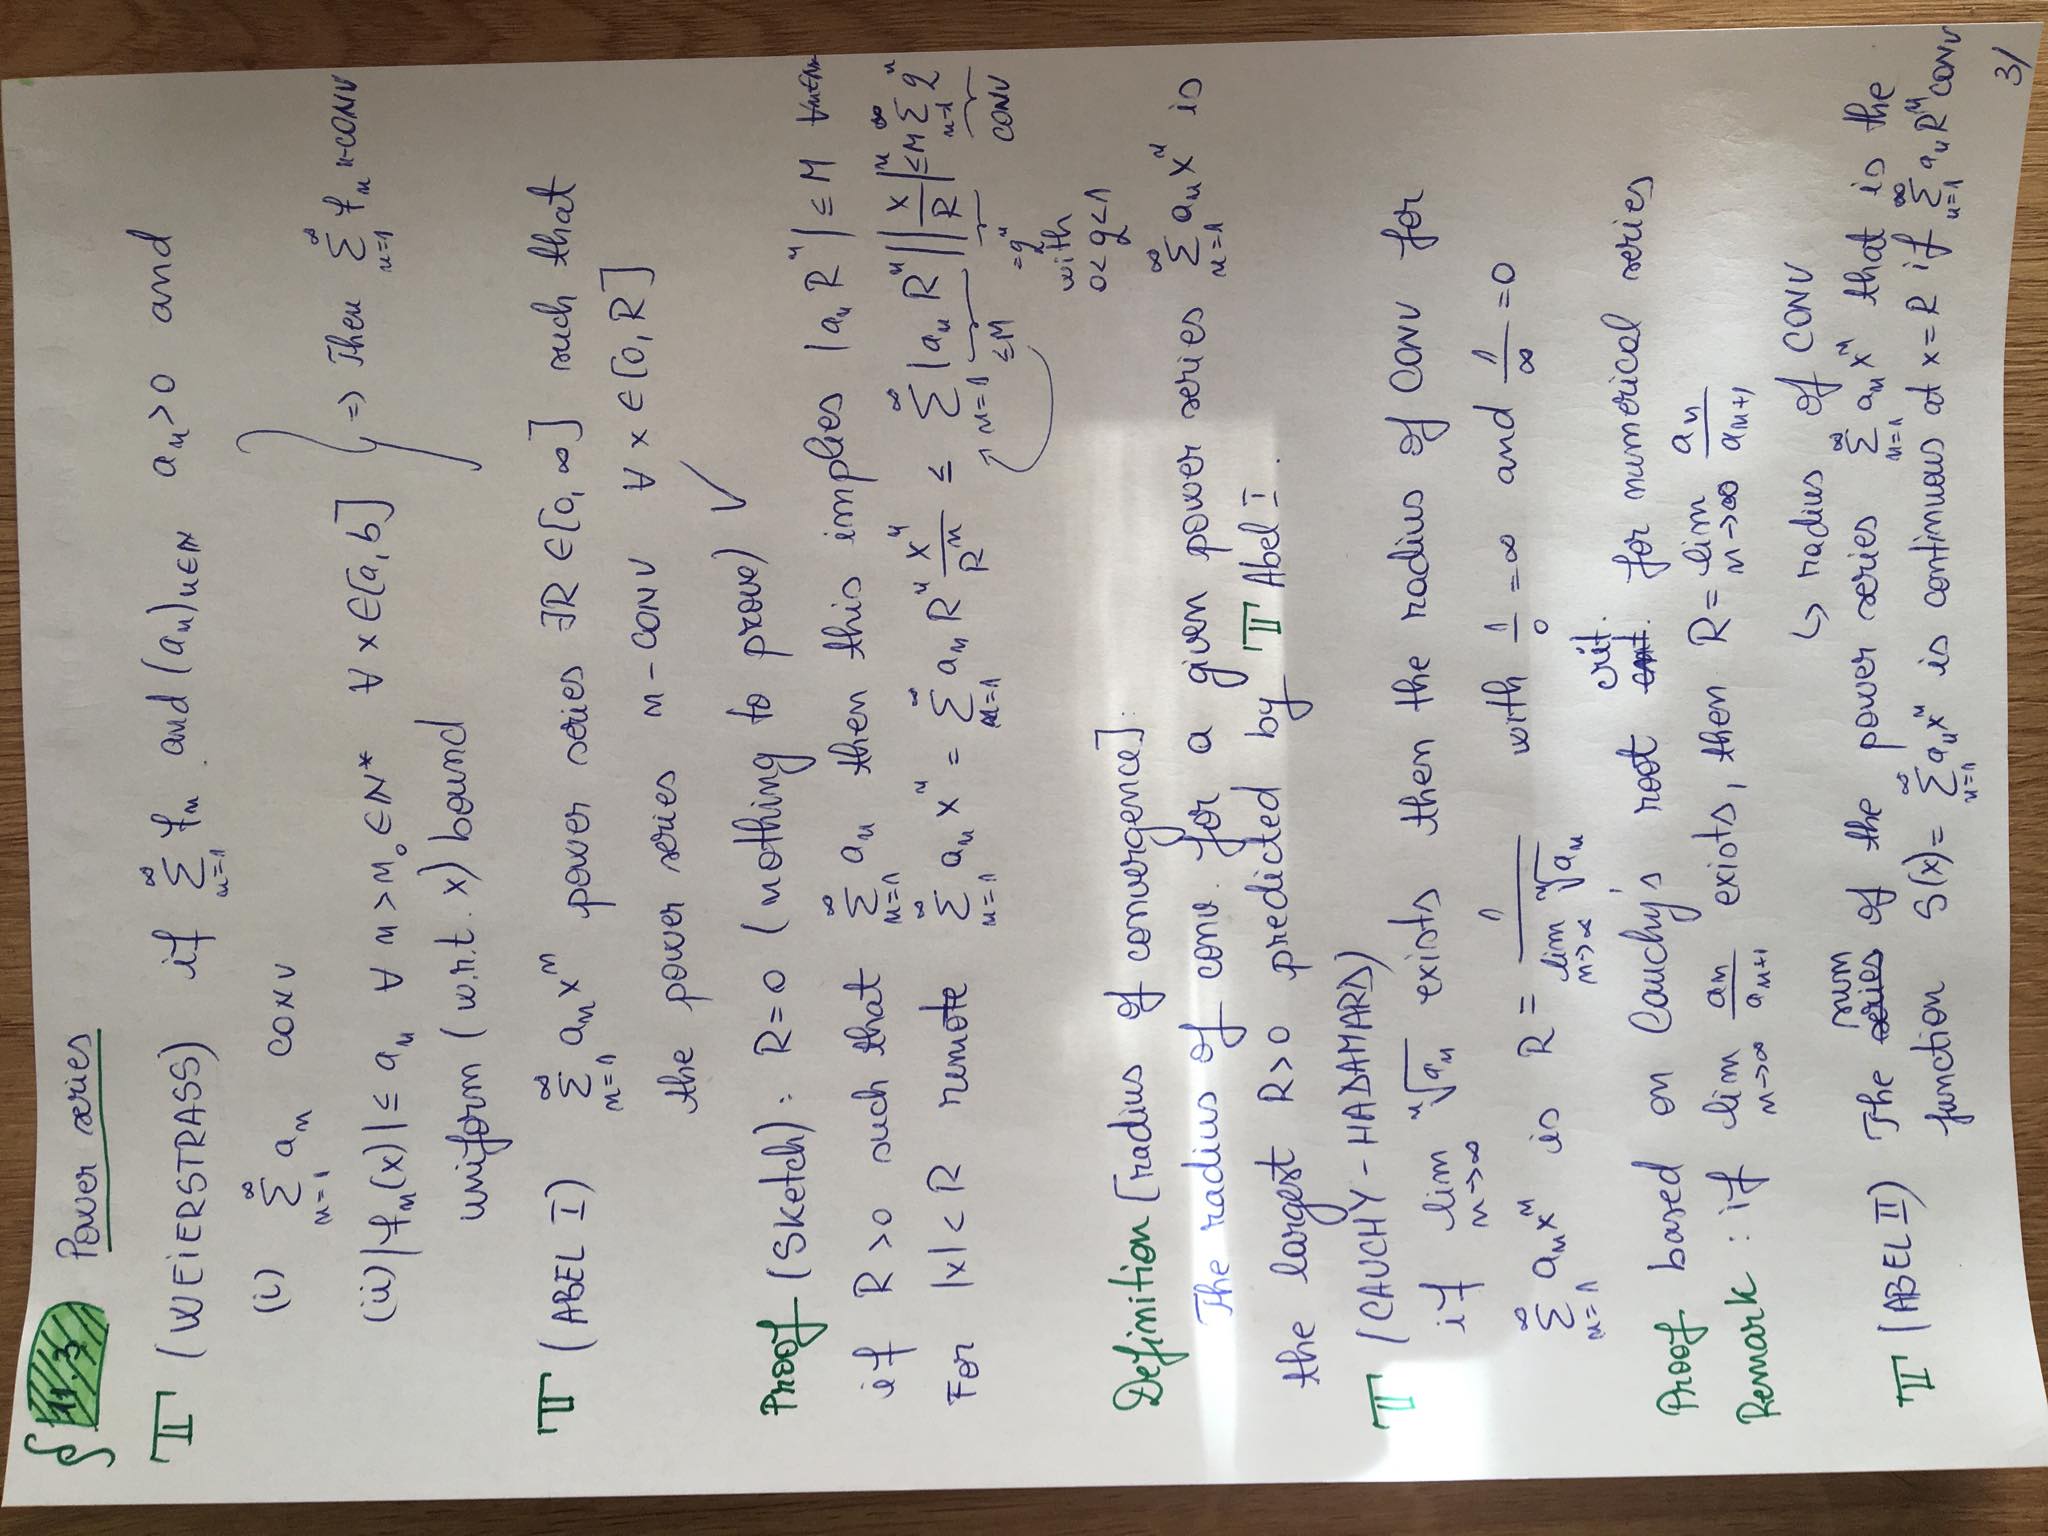 § 11.3 Power series
T (WEIERSTRASS) if ∑_{n=1}^∞ f_n and (a_n)_{n∈N} a_n>0 and
(i) ∑_{n=1}^∞ a_n CONV
(ii) |f_n(x)| ≤ a_n ∀ n>n_0 ∈N* ∀ x∈[a,b] } => Then ∑_{n=1}^∞ f_n u-CONV
uniform (w.r.t. x) bound
T (ABEL I) ∑_{n=1}^∞ a_n x^n power series ∃R ∈[0,∞] such that
the power series u-CONV ∀ x∈[0,R]
Proof (Sketch): R=0 (nothing to prove) ✓
if R>0 such that ∑_{n=1}^∞ a_n then this implies |a_n R^n| ≤ M ∀n∈N
For |x|<R remote ∑_{n=1}^∞ a_n x^n = ∑_{n=1}^∞ a_n R^n x^n/R^n ≤ ∑_{n=1}^∞ |a_n R^n| |x/R|^n ≤ M ∑_{n=1}^∞ q^n
≤M =q^n CONV
with
0<q<1
Definition [radius of convergence]:
The radius of conv. for a given power series ∑_{n=1}^∞ a_n x^n is
the largest R>0 predicted by T Abel I.
T (CAUCHY-HADAMARD)
if lim_{n→∞} ⁿ√a_n exists then the radius of CONV for
∑_{n=1}^∞ a_n x^n is R = 1/(lim_{n→∞} ⁿ√a_n) with 1/0 = ∞ and 1/∞ = 0
Proof based on Cauchy's root crit. for numerical series
Remark: if lim_{n→∞} a_n/a_{n+1} exists, then R = lim_{n→∞} a_n/a_{n+1}
↳ radius of CONV
T (ABEL II) The sum of the power series ∑_{n=1}^∞ a_n x^n that is the
function S(x) = ∑_{n=1}^∞ a_n x^n is continuous at x=R if ∑_{n=1}^∞ a_n R^n CONV
3/